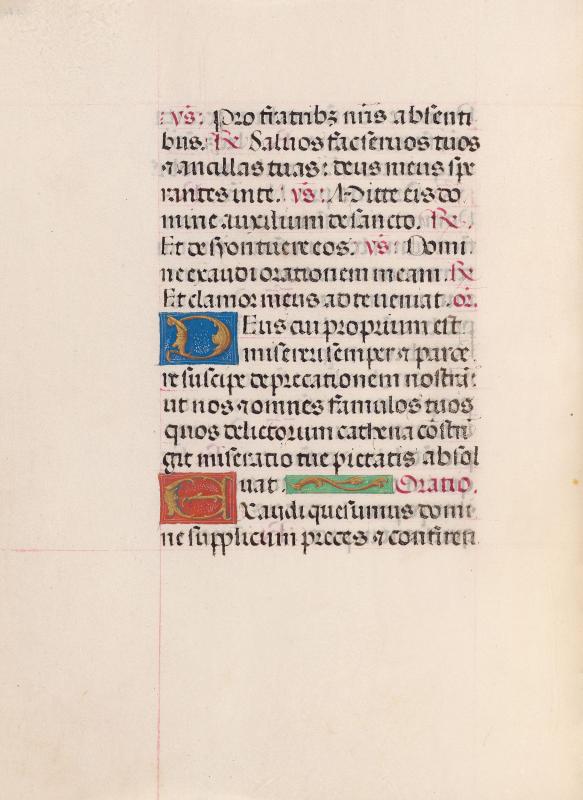 vs: Pro fratribꝫ nr̄is absenti
bus. R Saluos fac seruos tuos
⁊ ancillas tuas: deus meus spe
rantes in te. vs: Mitte eis do
mine auxilium de sancto. R.
Et de syon tuere eos. vs: Domi
ne exaudi orationem meam. R
Et clamor meus ad te veniat. or.
Deus cui proprium est
misereri semper ⁊ parce
re suscipe deprecationem nostrā:
ut nos ⁊ omnes famulos tuos
quos delictorum cathena cōstrī
git miseratio tue pietatis absol
uat. Oratio.
Exaudi quesumus domi
ne supplicum preces ⁊ confiteti